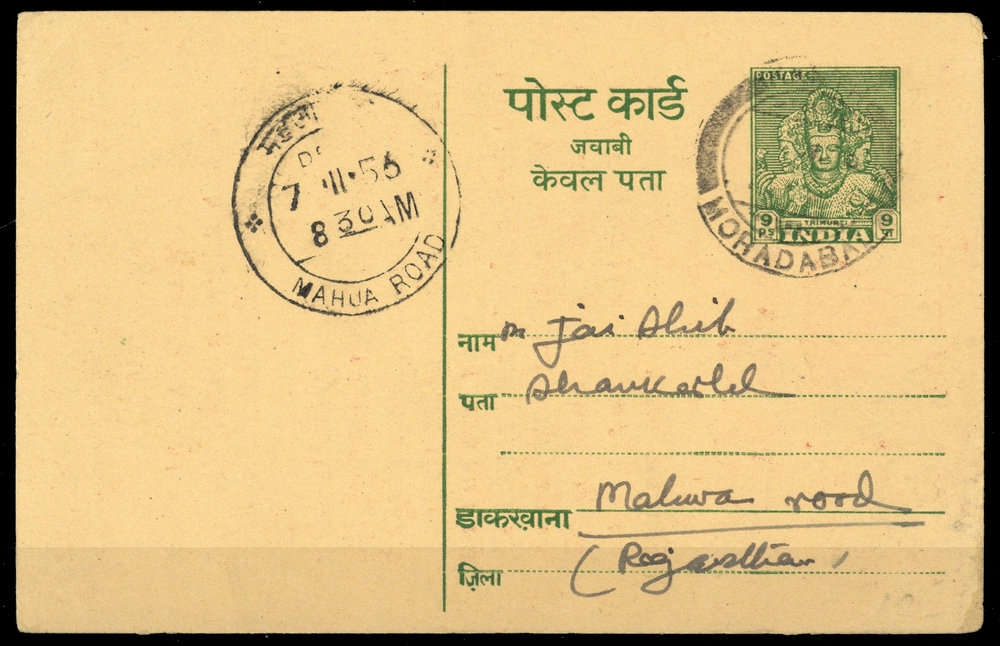 पोस्ट कार्ड
जवाबी
केवल पता
POSTAGE
9 PS TRIMURTI 9 पा
INDIA
MORADABA
7 ·II·56
8 30 AM
MAHUA ROAD
नाम m Jai Shib
पता Shankarlal
डाकखाना Mahwa road
ज़िला (Rajasthan)